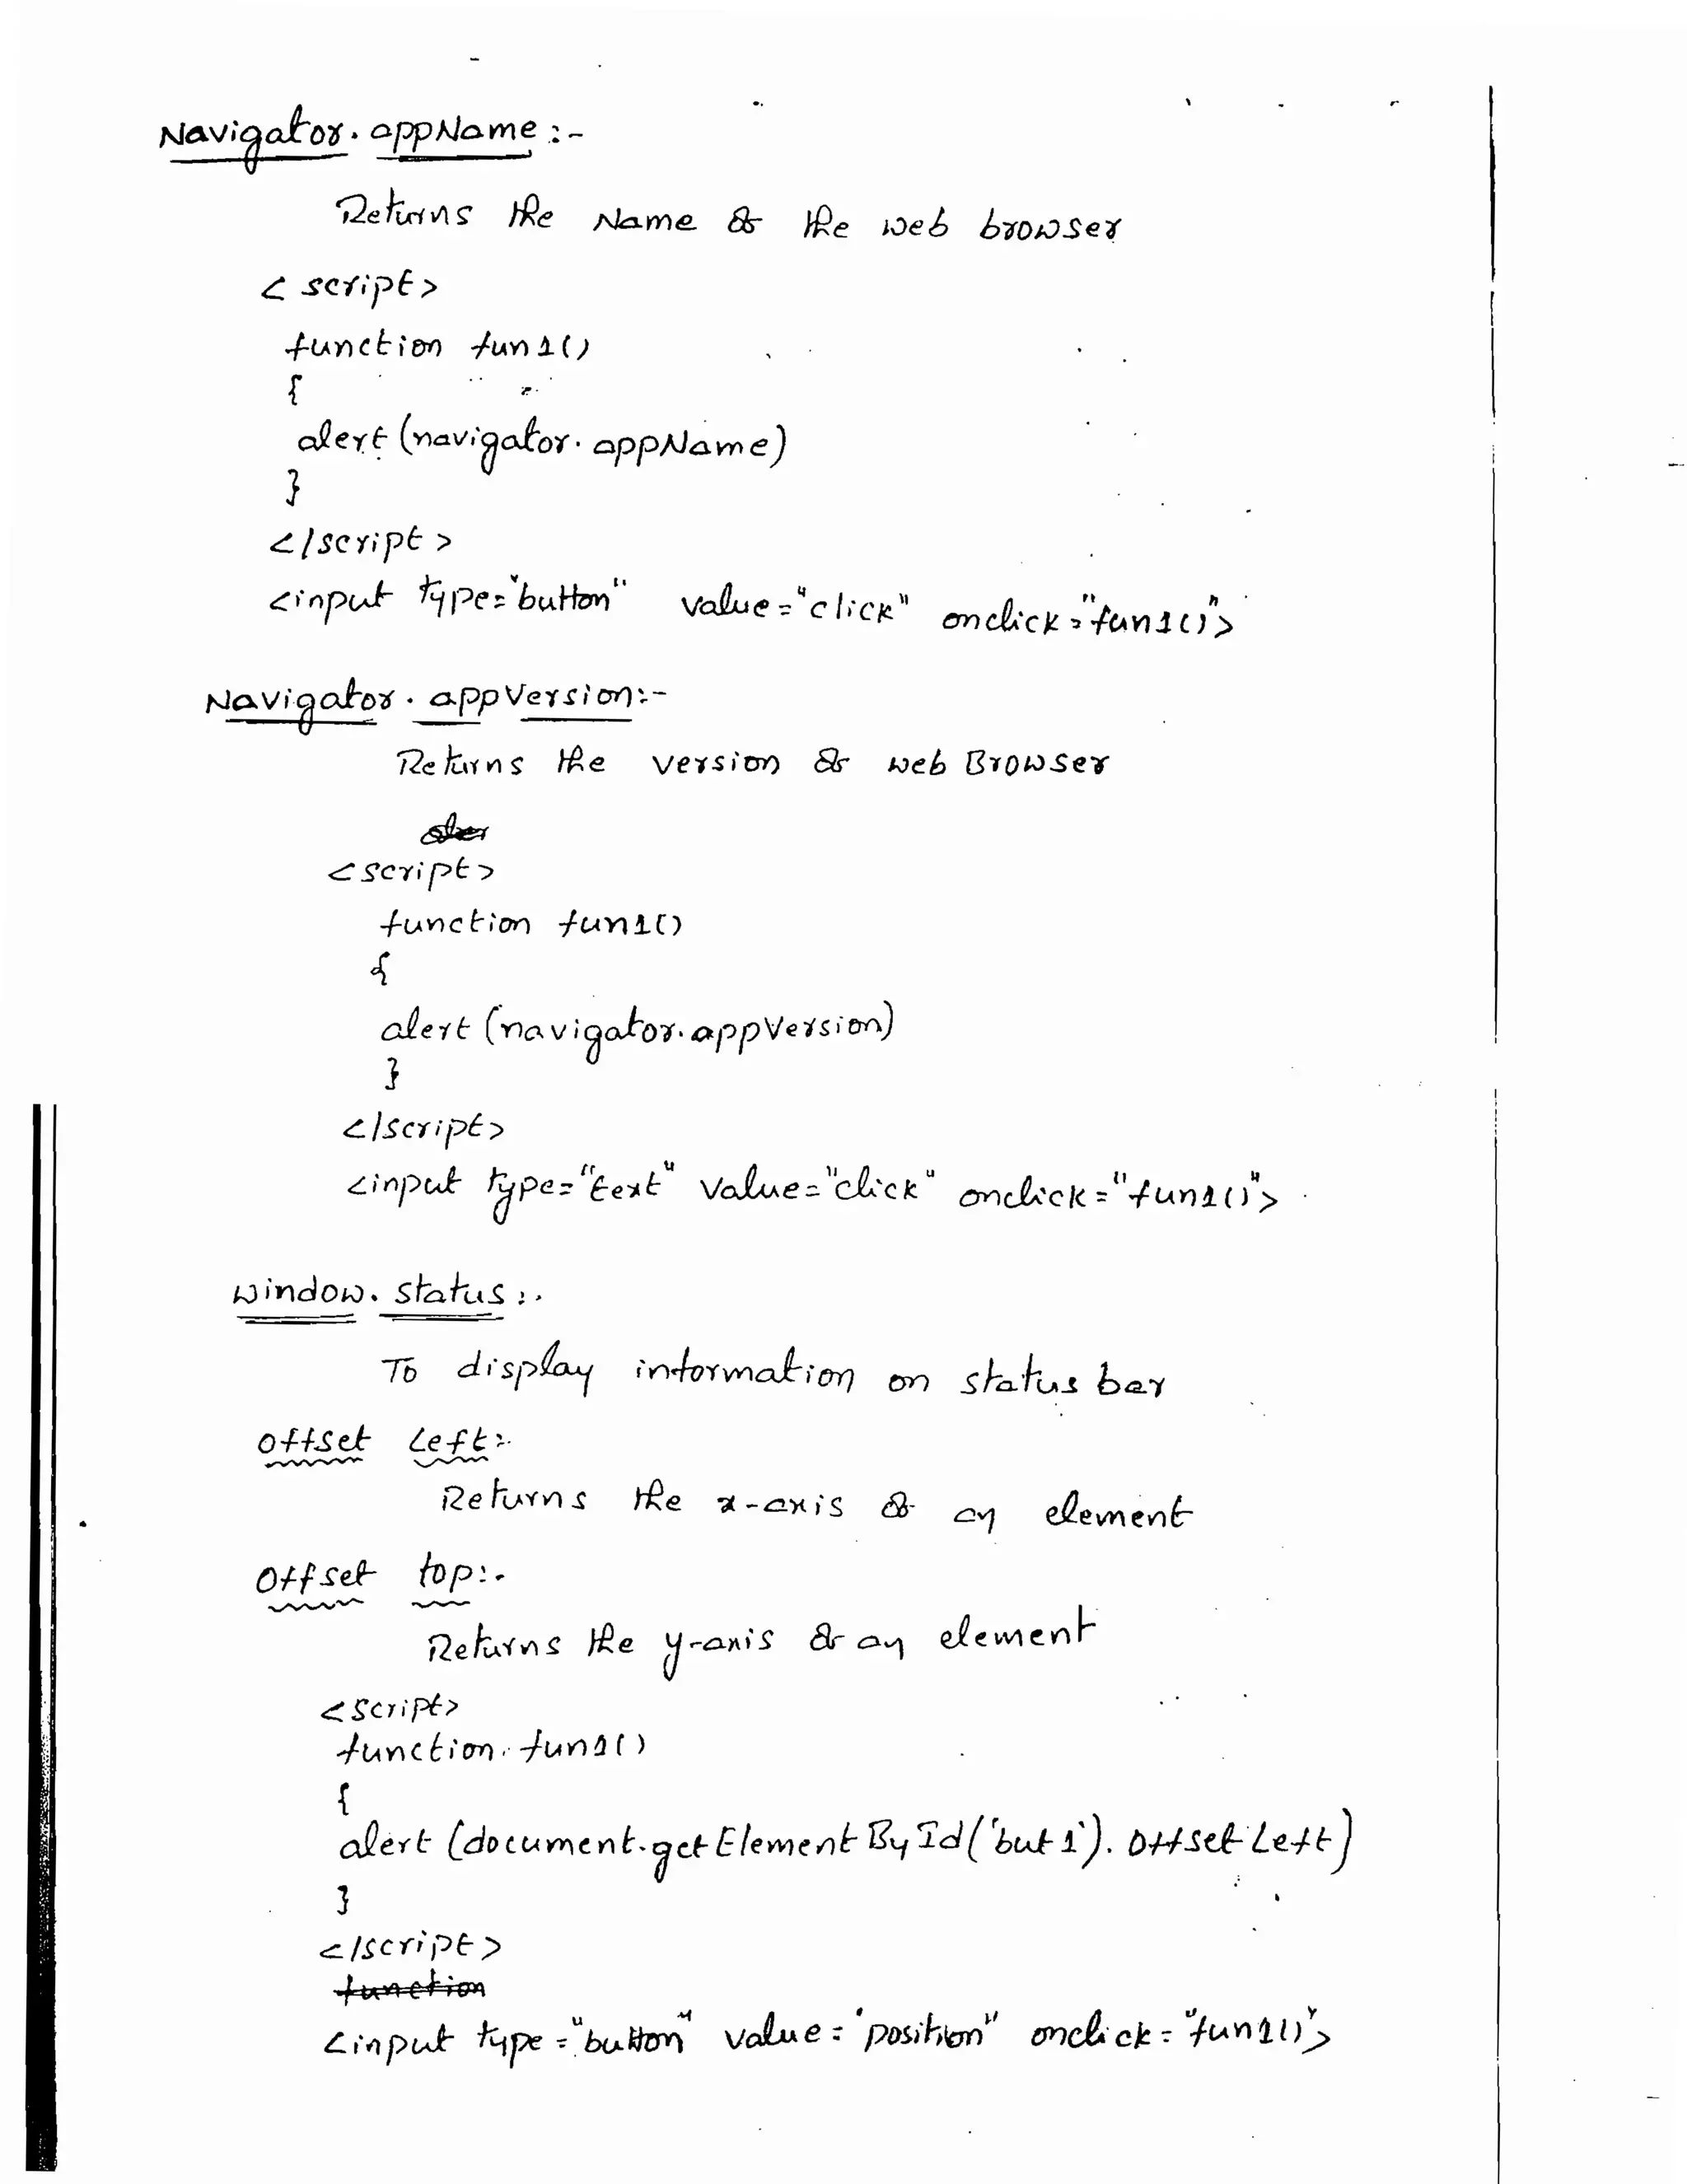 Navigator. appName :-
Returns the Name of the web browser
< script>
function fun1()
{
alert (navigator. appName)
}
</script >
<input type="button" value="click" onclick="fun1()">
Navigator. appVersion:-
Returns the version of web Browser
<script>
function fun1()
{
alert (navigator.appVersion)
}
</script>
<input type="text" value="click" onclick="fun1()">
window. status :.
To display information on status bar
offset Left:-
Returns the x-axis of an element
Offset top:-
Returns the y-axis of an element
<script>
function fun1()
{
alert (document.getElementById('but1'). OffsetLeft)
}
</script>
function
<input type="button" value="position" onclick="fun1()">